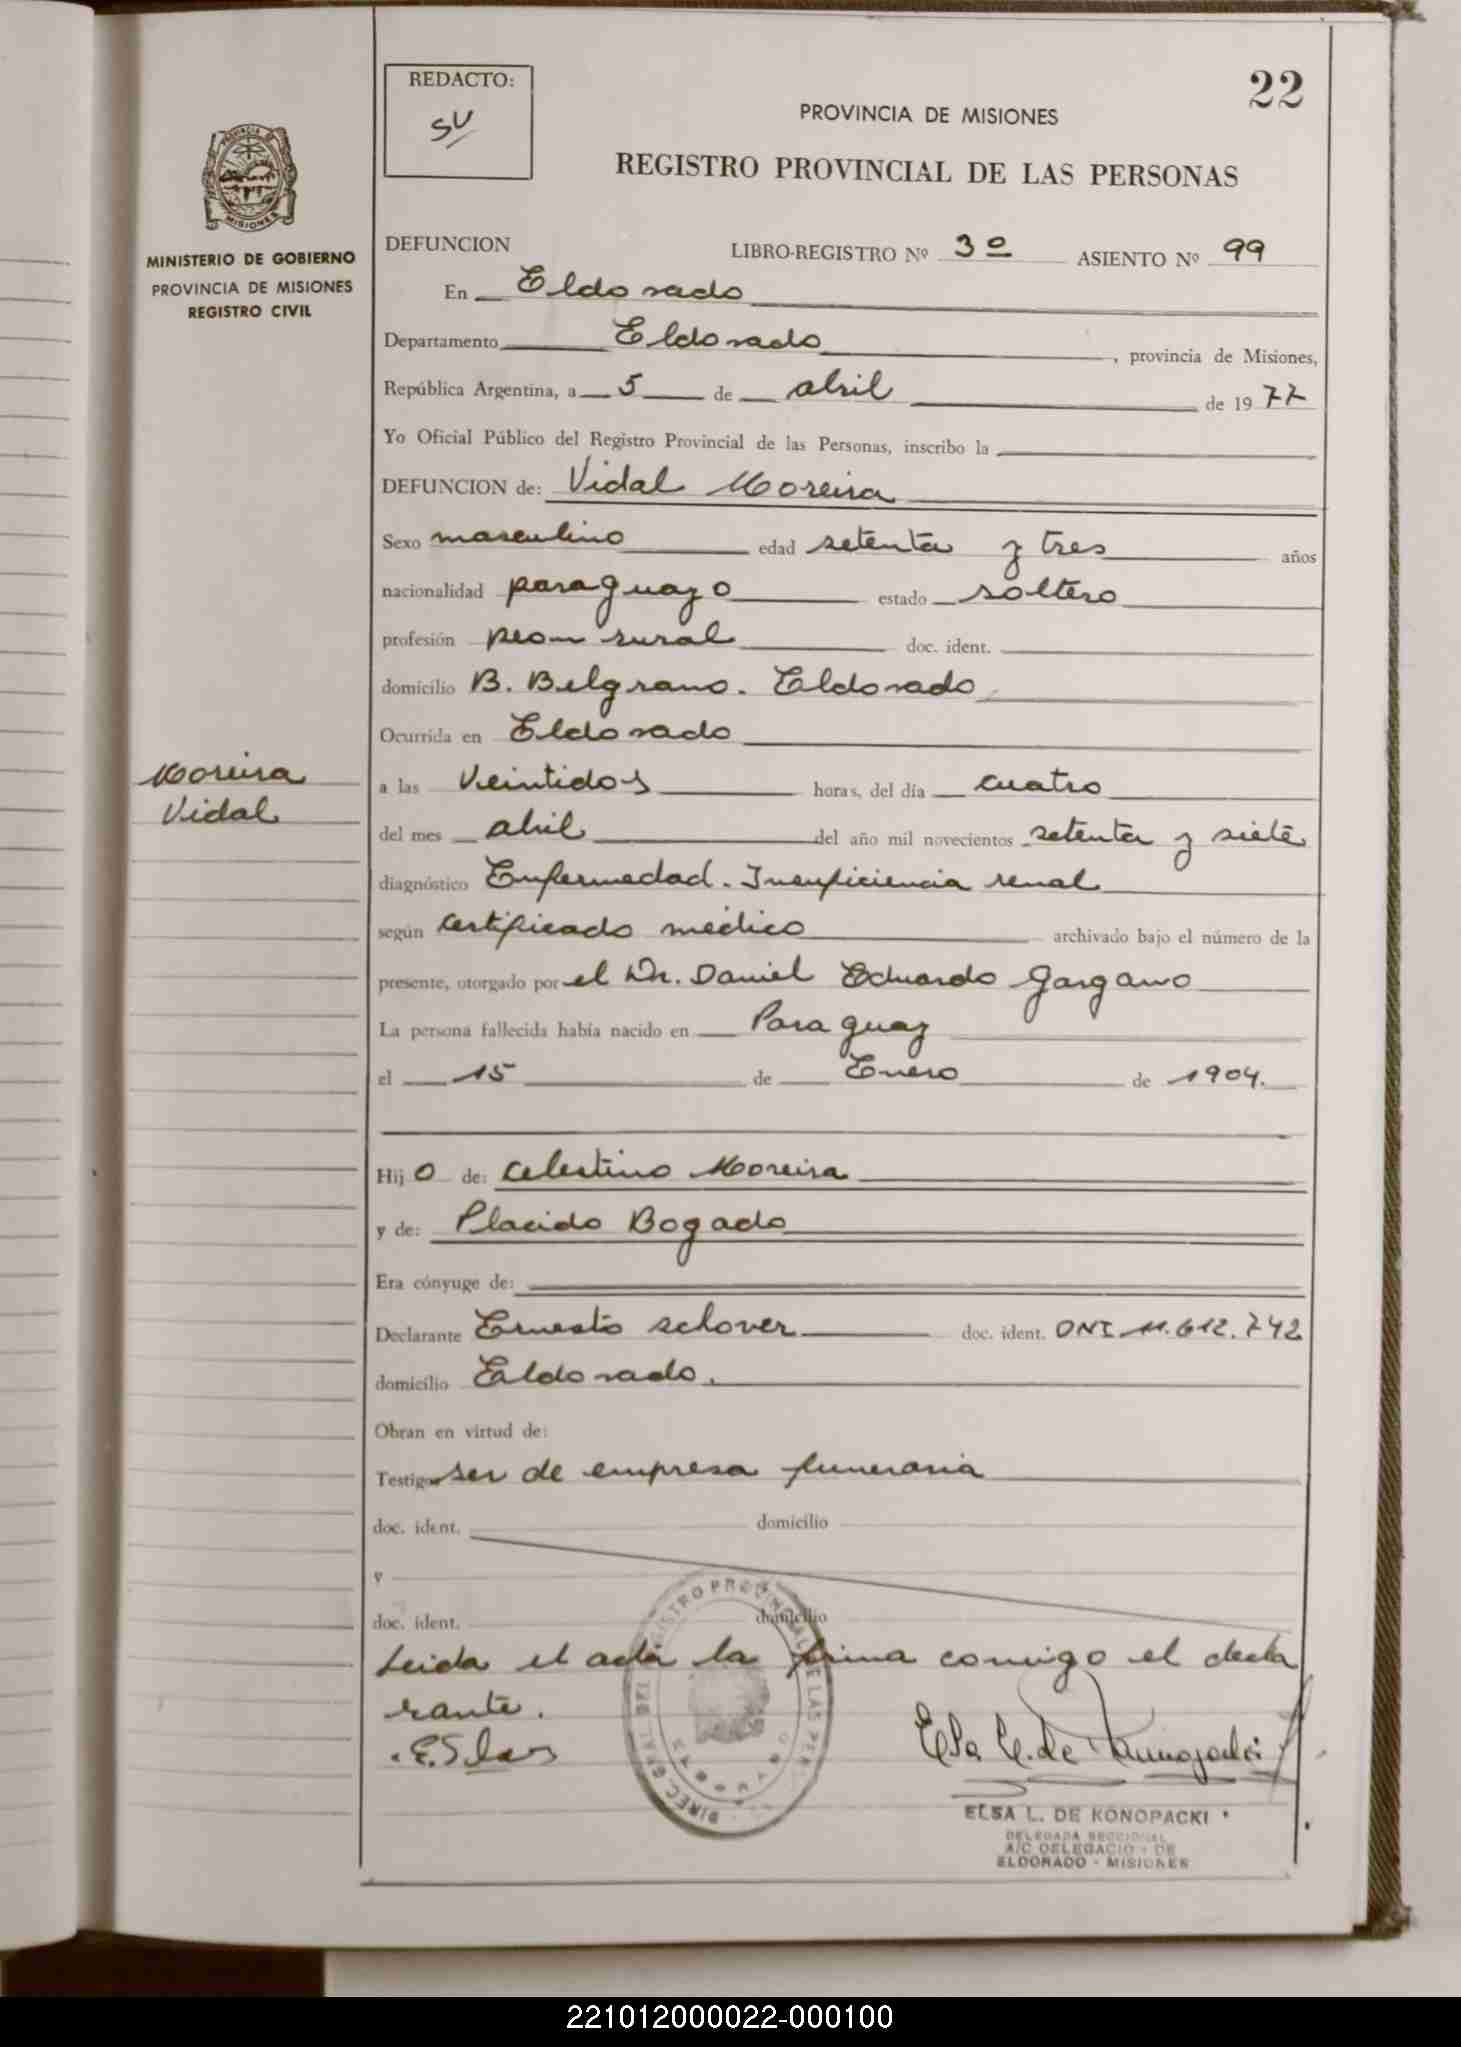 REDACTO:
SU
22
PROVINCIA DE MISIONES
REGISTRO PROVINCIAL DE LAS PERSONAS
MISIONES
MINISTERIO DE GOBIERNO
PROVINCIA DE MISIONES
REGISTRO CIVIL
DEFUNCION LIBRO-REGISTRO Nº 3º ASIENTO Nº 99
En Eldorado
Departamento Eldorado, provincia de Misiones,
República Argentina, a 5 de abril de 1977
Yo Oficial Público del Registro Provincial de las Personas, inscribo la
DEFUNCION de: Vidal Moreira
Sexo masculino edad setenta y tres años
nacionalidad paraguayo estado soltero
profesión peon rural doc. ident.
domicilio B. Belgrano. Eldorado
Ocurrida en Eldorado
Moreira
Vidal
a las veintidos horas, del día cuatro
del mes abril del año mil novecientos setenta y siete
diagnóstico Enfermedad. Insuficiencia renal
según certificado médico archivado bajo el número de la
presente, otorgado por el Dr. Daniel Eduardo Gargano
La persona fallecida había nacido en Paraguay
el 15 de Enero de 1904.
Hijo de: Celestino Moreira
y de: Placido Bogado
Era cónyuge de:
Declarante Ernesto schover doc. ident. DNI 11.612.742
domicilio Eldorado.
Obran en virtud de:
Testigo ser de empresa funeraria
doc. ident. domicilio
y
doc. ident. domicilio
Leida el acta la firma comigo el decla
rante.
DIREC. GRAL. DEL REGISTRO PROVINCIAL DE LAS PER
ELDORADO
ELSA L. DE KONOPACKI
DELEGADA SECCIONAL
A/C DELEGACIO - DE
ELDORADO - MISIONES
221012000022-000100